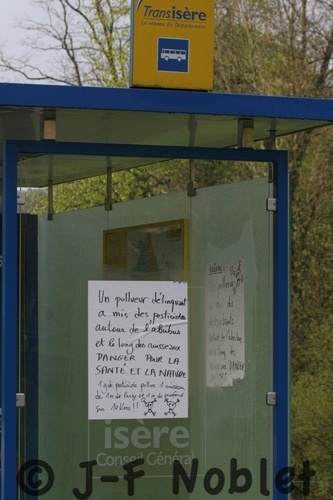 Transisère
Le réseau du Département
Un pollueur délinquant
a mis des pesticides
autour de l'abribus
et le long des ruisseaux
DANGER POUR LA
SANTÉ ET LA NATURE
1 g de pesticide pollue 1 ruisseau
de 1 m de large et 1 m de profond
sur 10 Kms !!
isère
Conseil Général
© J-F Noblet